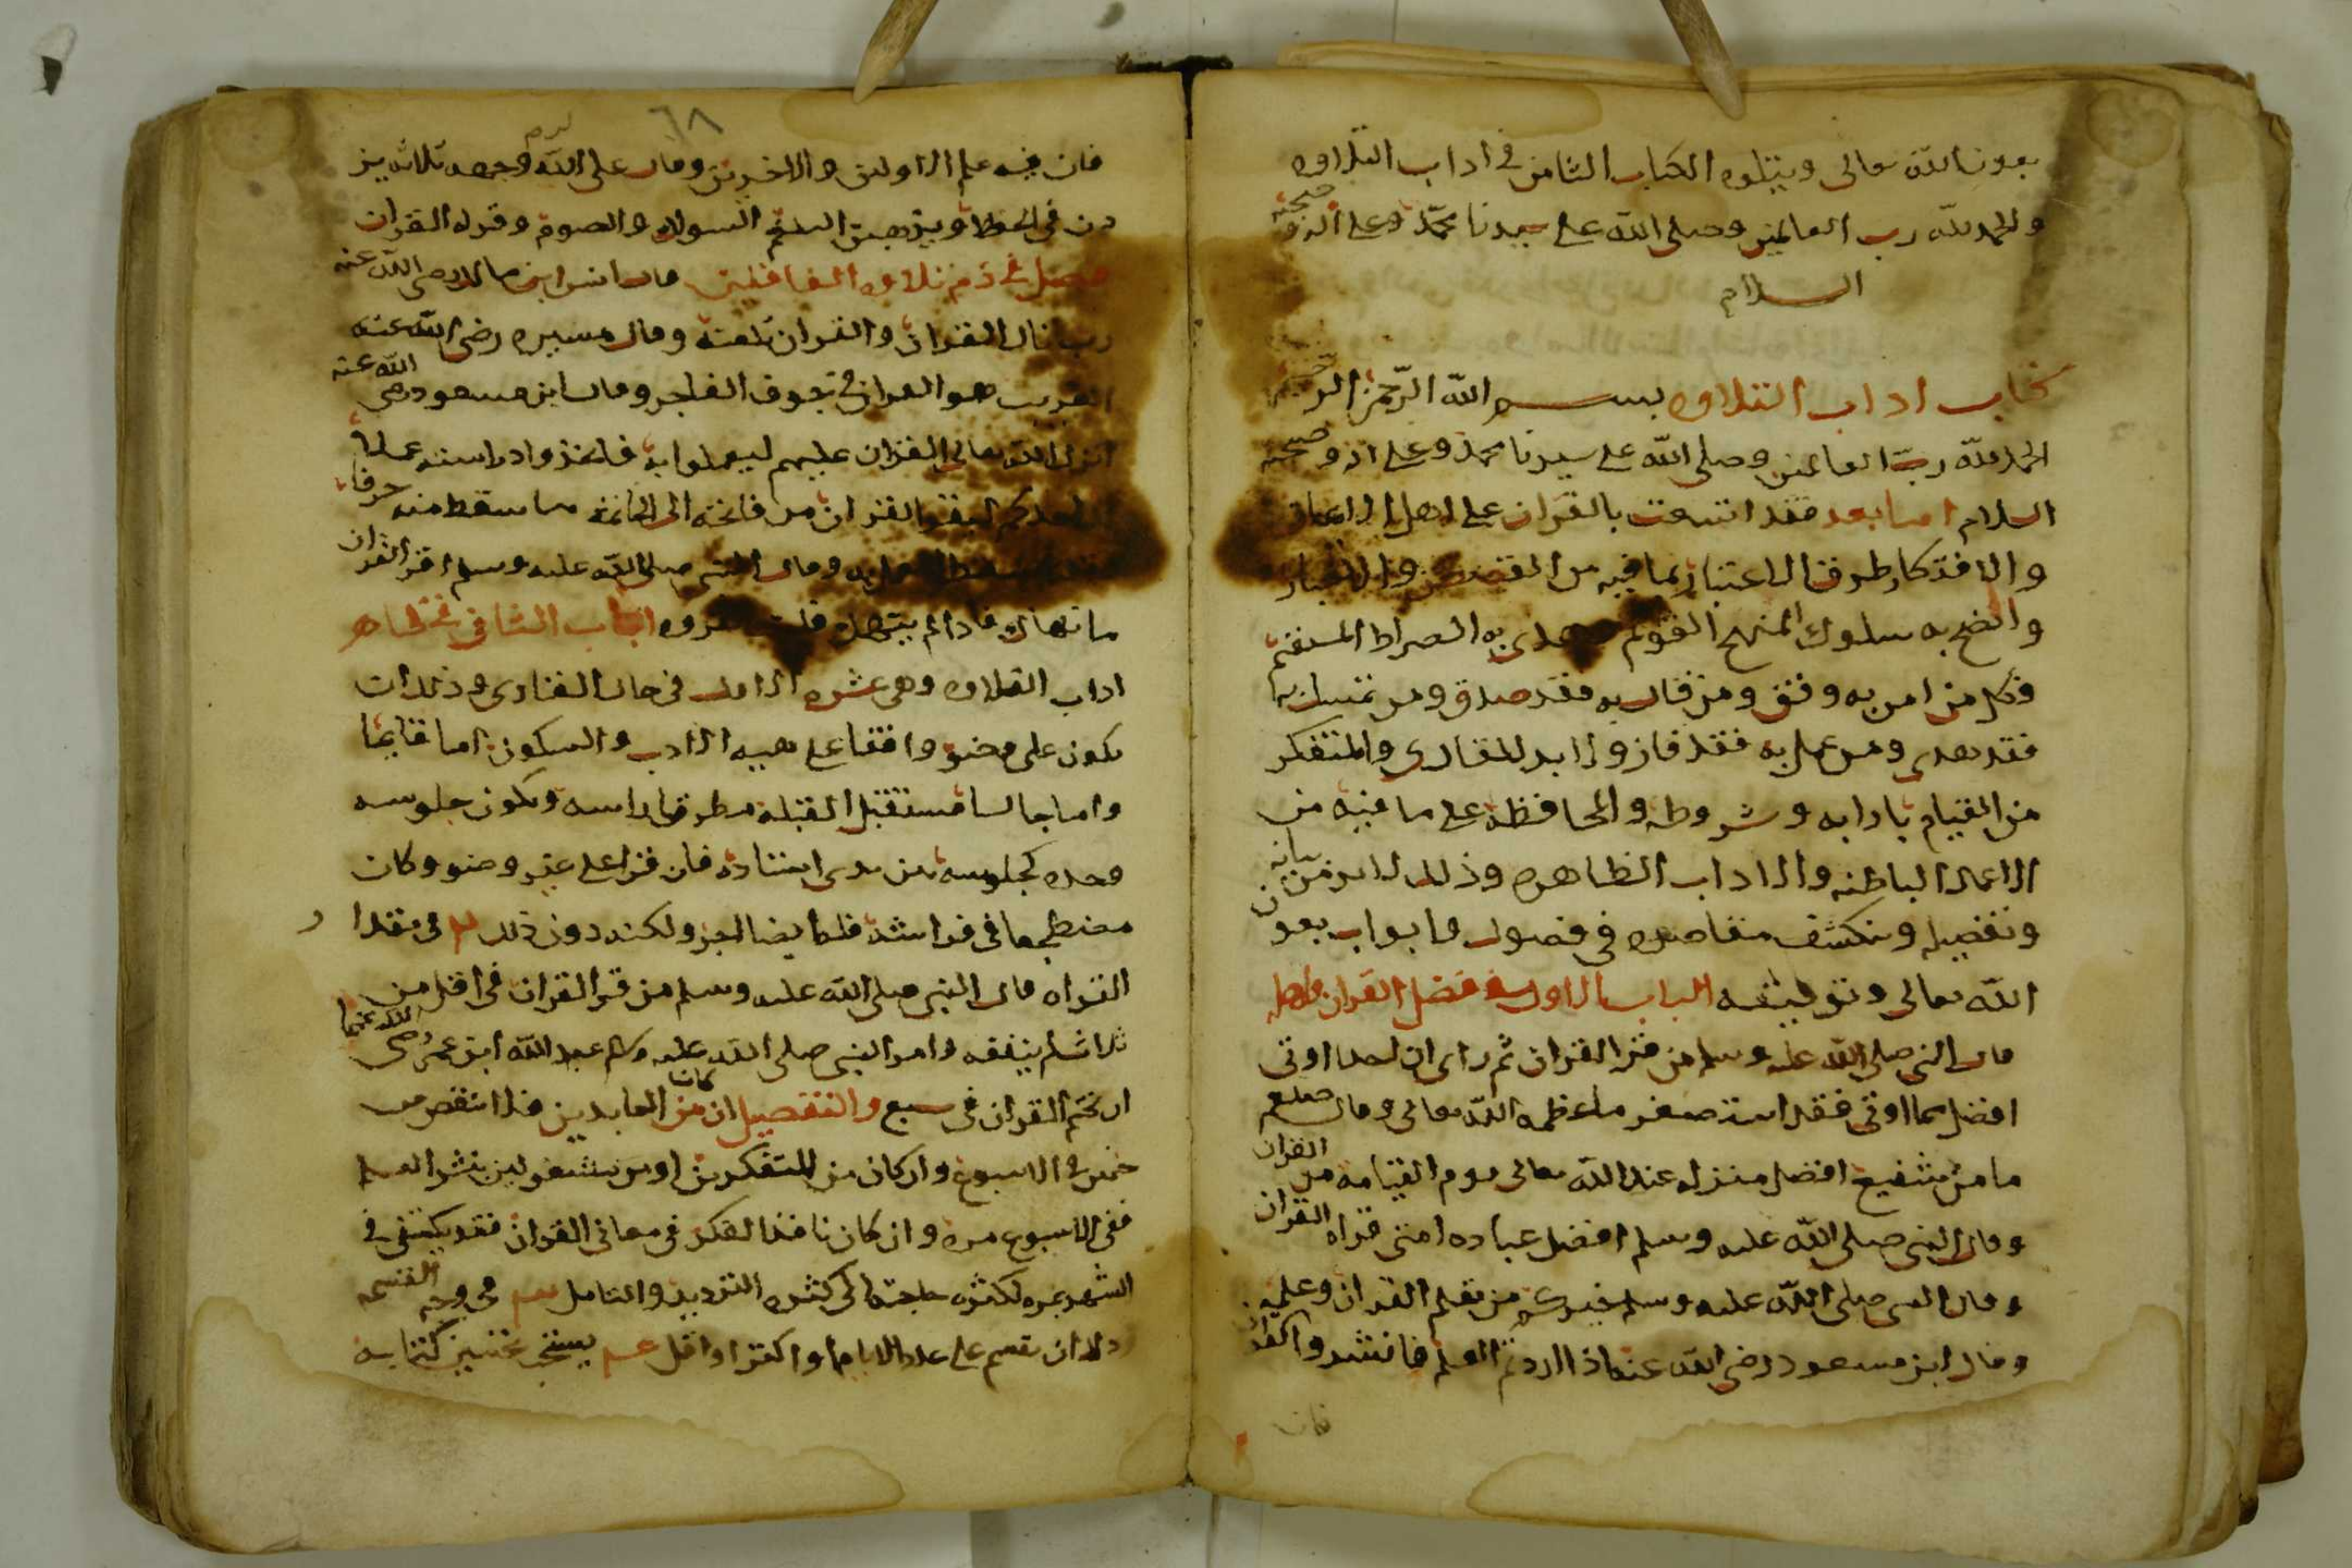 بعون الله تعالى ويتلوه الكتاب الثامن في اداب التلاوه
والحمد لله رب العالمين وصلى الله على سيدنا محمد وعلى اله وصحبه
السلام
كتاب اداب التلاوه بسم الله الرحمن الرحيم
الحمد لله رب العالمين وصلى الله على سيدنا محمد وعلى اله وصحبه
السلام اما بعد فقد اتسعت بالقران على اهل الافكار
والافتكار طرق الاعتبار بما فيه من القصص والاخبار
واتضح به سلوك المنهج القويم وهدى به الصراط المستقيم
فكل من امن به وفق ومن قال به فقد صدق ومن تمسك به
فقد هدى ومن عمل به فقد فاز ولا بد للقارى والمتفكر
من القيام بادابه وشروطه والمحافظه على ما فيه من
الاعمال الباطنه والاداب الظاهره وذلك لابد من بيانه
وتفصيله وتنكشف مقاصده في فصول وابواب بعون
الله تعالى وتوفيقه الباب الاول في فضل القران واهله
قال النبي صلى الله عليه وسلم من قرا القران ثم راى ان احدا اوتى
افضل مما اوتى فقد استصغر ما عظمه الله تعالى وقال صلعم
ما من شفيع افضل منزله عند الله تعالى يوم القيامه من القران
وقال النبي صلى الله عليه وسلم افضل عباده امتى قراه القران
وقال النبي صلى الله عليه وسلم خيركم من تعلم القران وعلمه
وقال ابن مسعود رضي الله عنه اذا اردتم العلم فانشدوا القران
فان
٦٨
فان فيه علم الاولين والاخرين وقال على كرم الله وجهه ثلاثه يز
دن في الحفظ ويذهبن البلغم السواك والصوم وقراه القران
فصل في ذم تلاوه الغافلين قال انس ابن مالك رضي الله عنه
رب تال القران والقران يلعنه وقال ميسره رضي الله عنه
الغريب هو القران في جوف الفاجر وقال ابن مسعود رضي الله عنه
انزل الله تعالى القران عليهم ليعملوا به فاتخذوا دراسته عملا
ان احدكم ليقرا القران من فاتحته الى خاتمته ما يسقط منه حرفا
وقد اسقط العمل به وقال النبي صلى الله عليه وسلم اقر القران
ما نهاك فاذا لم ينهك فلست تقروه الباب الثاني في ظاهر
اداب التلاوه وهي عشره الاول في حال القارى وذلك ان
يكون على وضو واقفا على هيه الادب والسكون اما قايما
واما جالسا مستقبل القبله مطرقا راسه ويكون جلوسه
وحده كجلوسه بين يدى استاذه فان قرا على غير وضو وكان
مضطجعا في فراشه فله ايضا اجر ولكنه دون ذلك ٢ في مقدا ر
القراه قال النبي صلى الله عليه وسلم من قر القران في اقل من
ثلاث لم يفقه وامر النبي صلى الله عليه وسلم عبد الله ابن عمر رضي الله عنهما
ان يختم القران في سبع والتفصيل ان كان من العابدين فلا ينقص من
ختمه في الاسبوع وان كان من المتفكرين او من يشتغولين بنشر العلم
ففى الاسبوع مره وان كان نافذ الفكر في معانى القران فقد يكتفى في
الشهر بمره لكثره حاجته الى كثره الترديد والتامل في وجه القسمه
وله ان يقسم على عدد الايام او اكثر او اقل يستحب تحسين كتابه